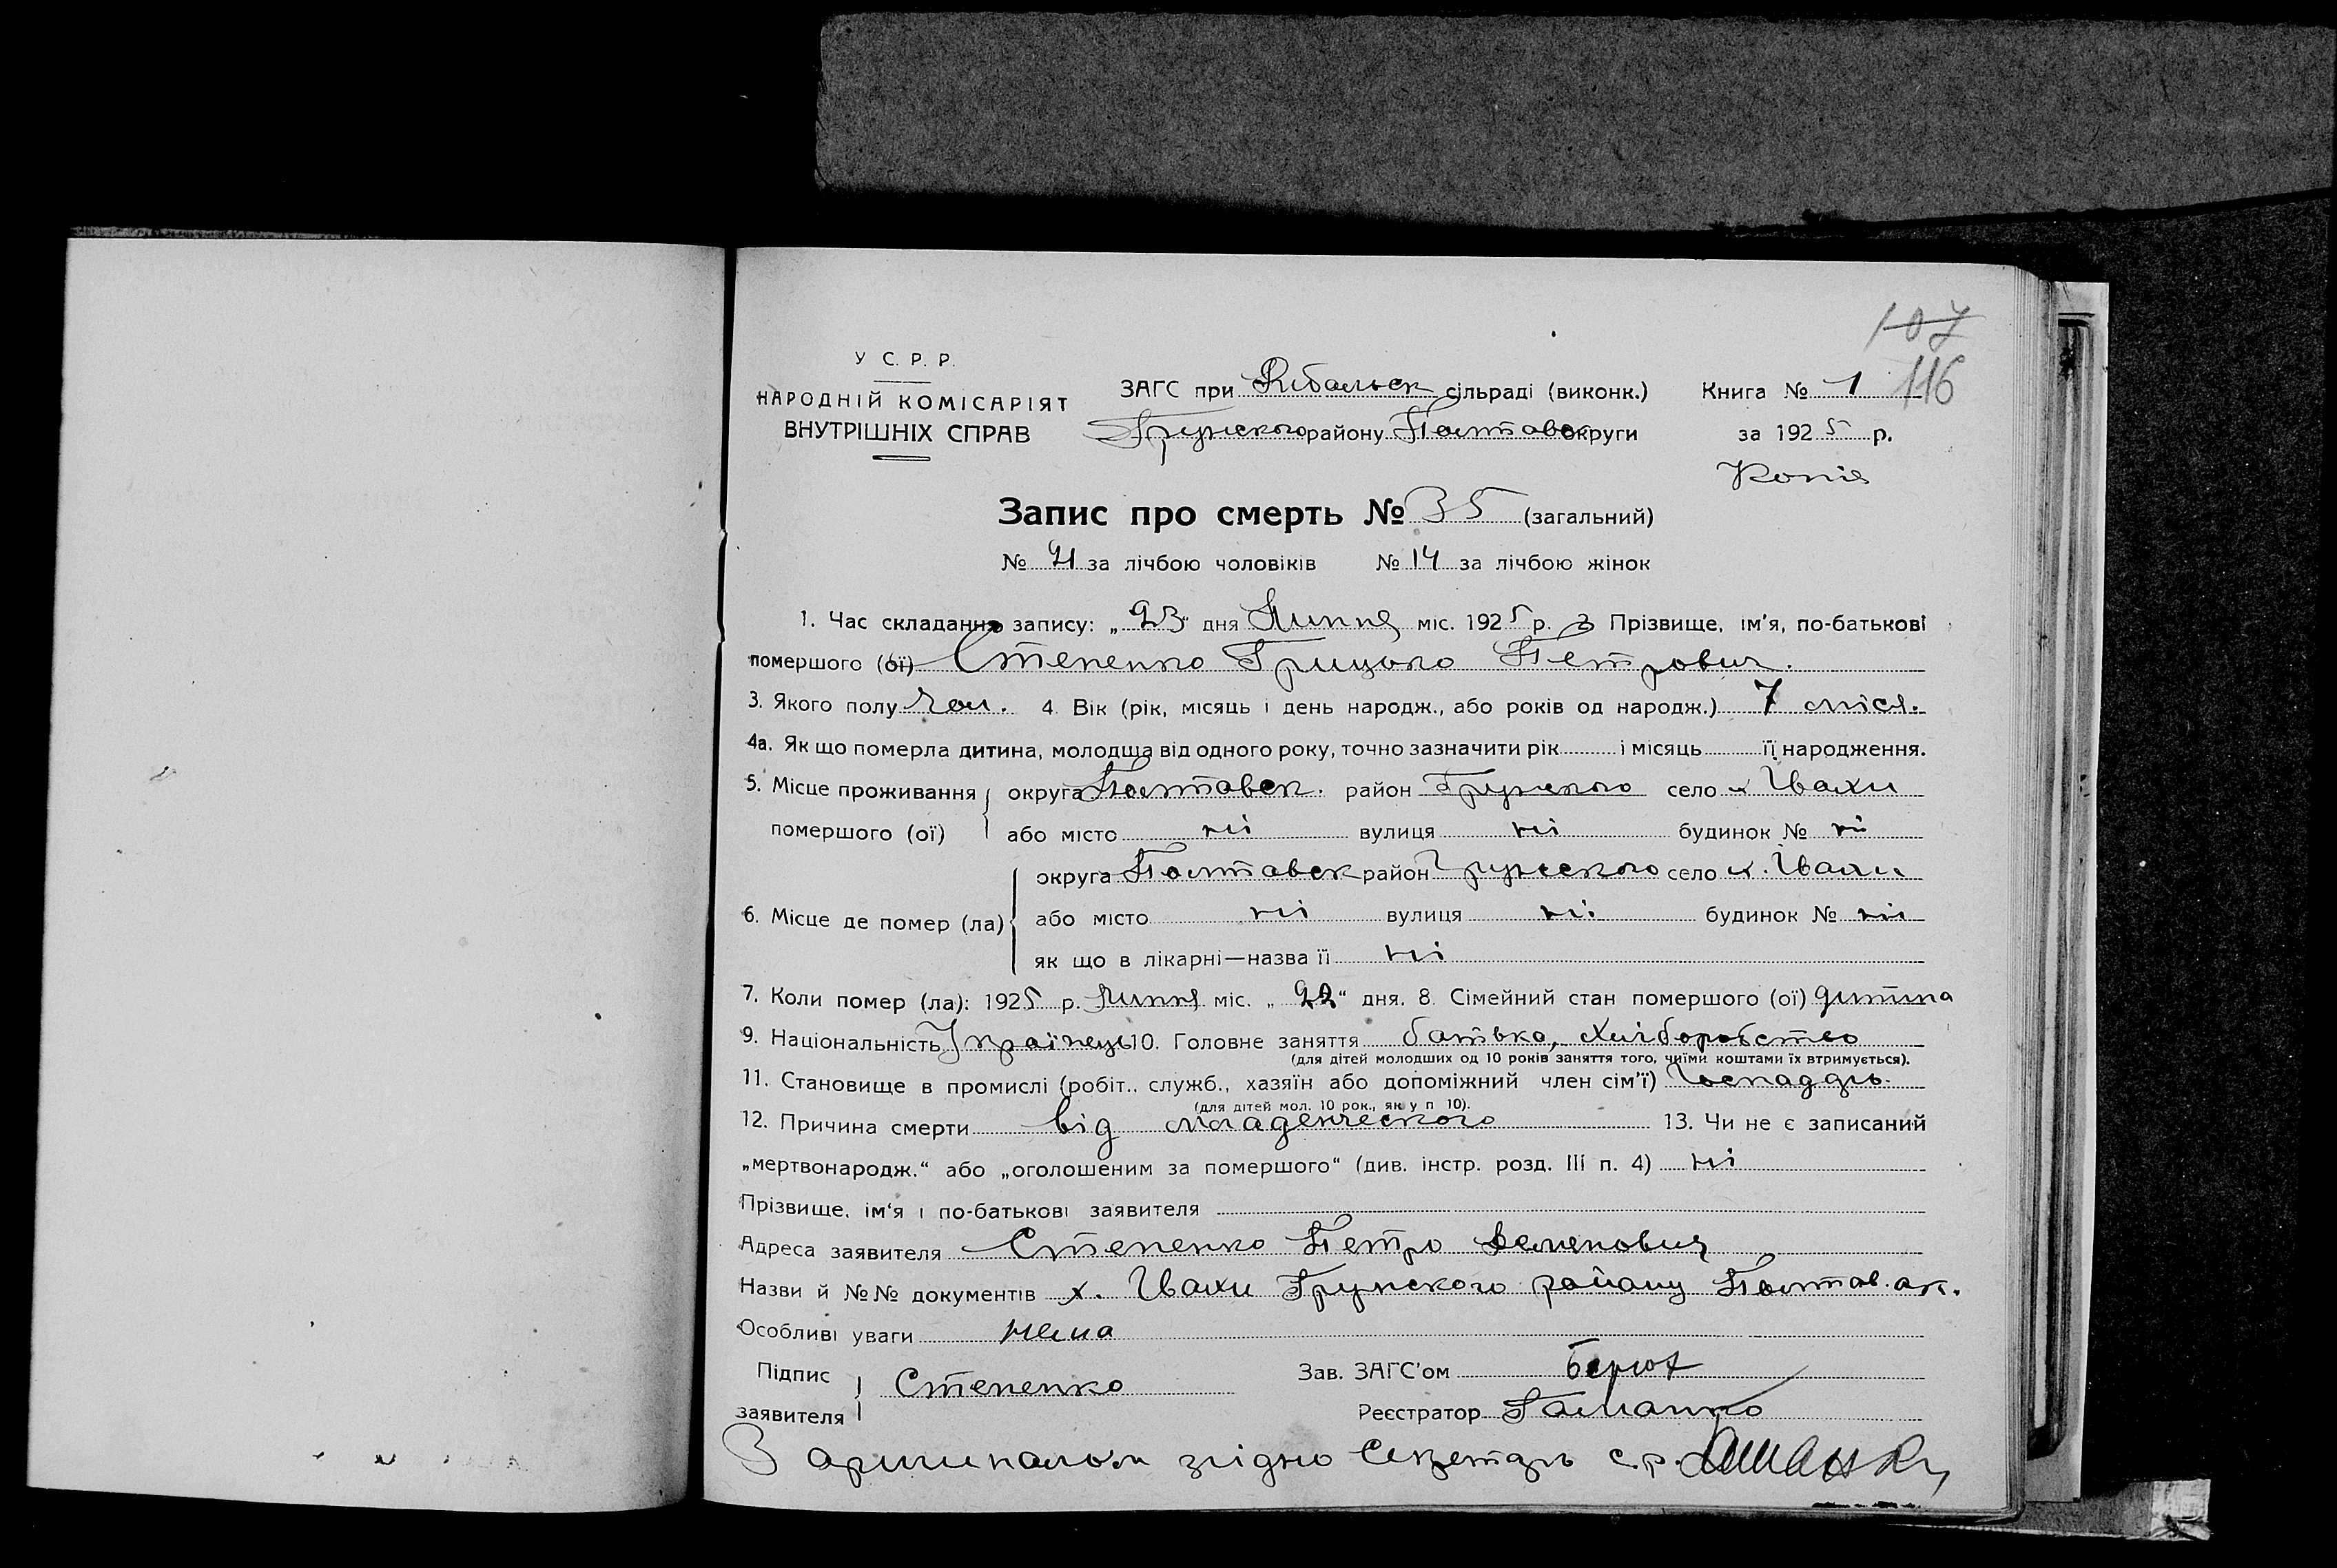 107
116
У С. Р. Р.
НАРОДНІЙ КОМІСАРІЯТ
ВНУТРІШНІХ СПРАВ
ЗАГС при Рибальск сільраді (виконк.)
Грунского району Полтавск округи
Книга № 1
за 1925 р.
Копія
Запис про смерть № 35 (загальний)
№ 21 за лічбою чоловіків № 14 за лічбою жінок
1. Час складання запису: „23" дня Липня міс. 1925 р. 2 Прізвище, ім'я, по-батькові
помершого (ої) Степенко Грицько Петрович.
3. Якого полу чол. 4. Вік (рік, місяць і день народж., або років од народж.) 7 місяі.
4а. Як що померла дитина, молодша від одного року, точно зазначити рік і місяць її народження.
5. Місце проживання помершого (ої) округа Полтавск. район Грунского село х Івахи
або місто ні вулиця ні будинок № ні
6. Місце де помер (ла) округа Полтавск район Грунського село х. Івахи
або місто ні вулиця ні будинок № ні
як що в лікарні—назва її ні
7. Коли помер (ла): 1925 р. Липня міс. „22" дня. 8 Сімейний стан помершого (ої) дитина
9. Національність Українець 10. Головне заняття батько, хліборобство
(для дітей молодших од 10 років заняття того, чиїми коштами їх втримується).
11. Становище в промислі (робіт., служб., хазяїн або допоміжний член сім'ї) Господдь.
(для дітей мол. 10 рок., як у п 10).
12. Причина смерти від младенческого 13. Чи не є записаний
„мертвонародж." або „оголошеним за помершого" (див. інстр. розд. III п. 4) ні
Прізвище, ім'я і по-батькові заявителя
Адреса заявителя Степенко Петро Семенович
Назви й №№ документів х. Івахи Грунского району Полтав. ок.
Особливі уваги нема
Підпис заявителя Степенко
Зав. ЗАГС'ом Берют
Реєстратор Гальашко
З аригиналом згідно Секретарь с.р.